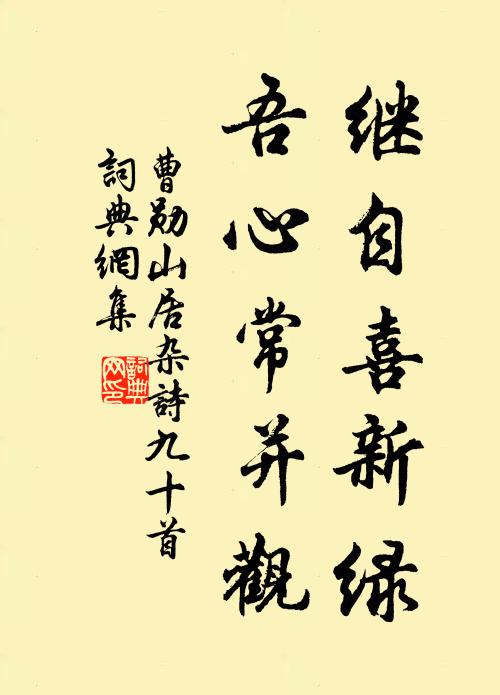 继自喜新绿
吾心常并觀
曹勋山居杂詩九十首
詞典網集
詞典網印